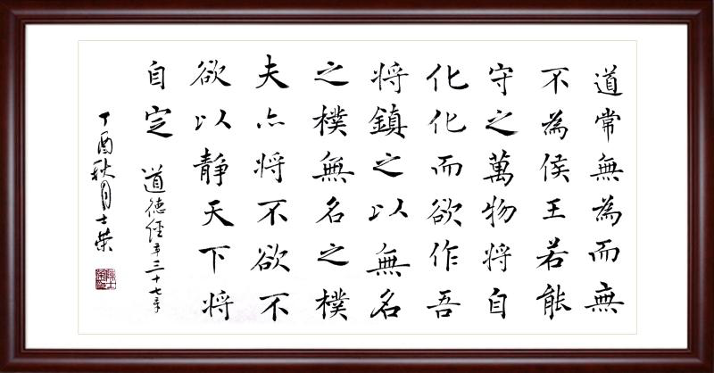 道常無為而無
不為侯王若能
守之萬物將自
化化而欲作吾
將鎮之以無名
之樸無名之樸
夫亦將不欲不
欲以靜天下將
自定 道德經第三十七章
丁酉秋月士榮